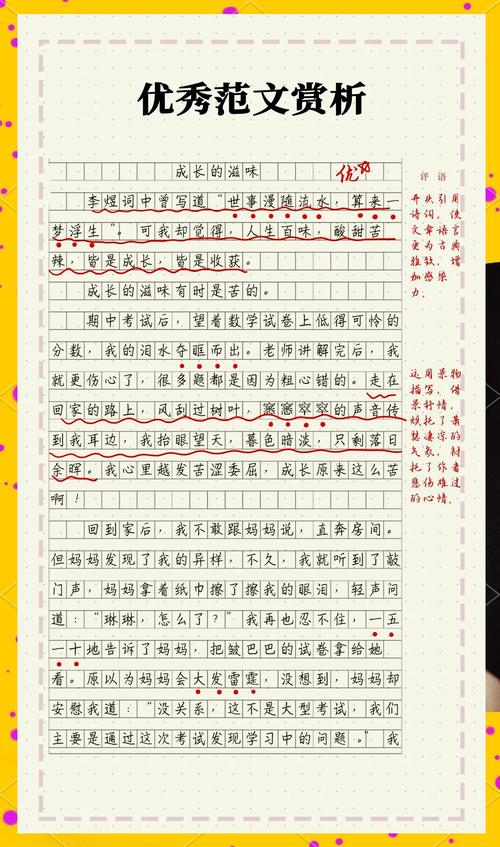 优秀范文赏析
成长的滋味
优
李煜词中曾写道“世事漫随流水，算来一
梦浮生”。可我却觉得，人生百味，酸甜苦
辣，皆是成长，皆是收获。
成长的滋味有时是苦的。
期中考试后，望着数学试卷上低得可怜的
分数，我的泪水夺眶而出。老师讲解完后，我
就更伤心了，很多题都是因为粗心错的。走在
回家的路上，风刮过树叶，窸窸窣窣的声音传
到我耳边，我抬眼望天，暮色暗淡，只剩落日
余晖。我心里越发苦涩委屈，成长原来这么苦
啊！
回到家后，我不敢跟妈妈说，直奔房间。
但妈妈发现了我的异样，不久，我就听到了敲
门声，妈妈拿着纸巾擦了擦我的眼泪，轻声问
道：“琳琳，怎么了？”我再也忍不住，一五
一十地告诉了妈妈，把皱巴巴的试卷拿给她
看。原以为妈妈会大发雷霆，没想到，妈妈却
安慰我道：“没关系，这不是大型考试，我们
主要是通过这次考试发现学习中的问题。”我
评语
开头引用
诗词，使
文章语言
更为古典
雅致，增
加感染
力。
运用景物
描写，借
景抒情，
烘托了萧
瑟凄凉的
气氛，衬
托了作者
悲伤难过
的心情。